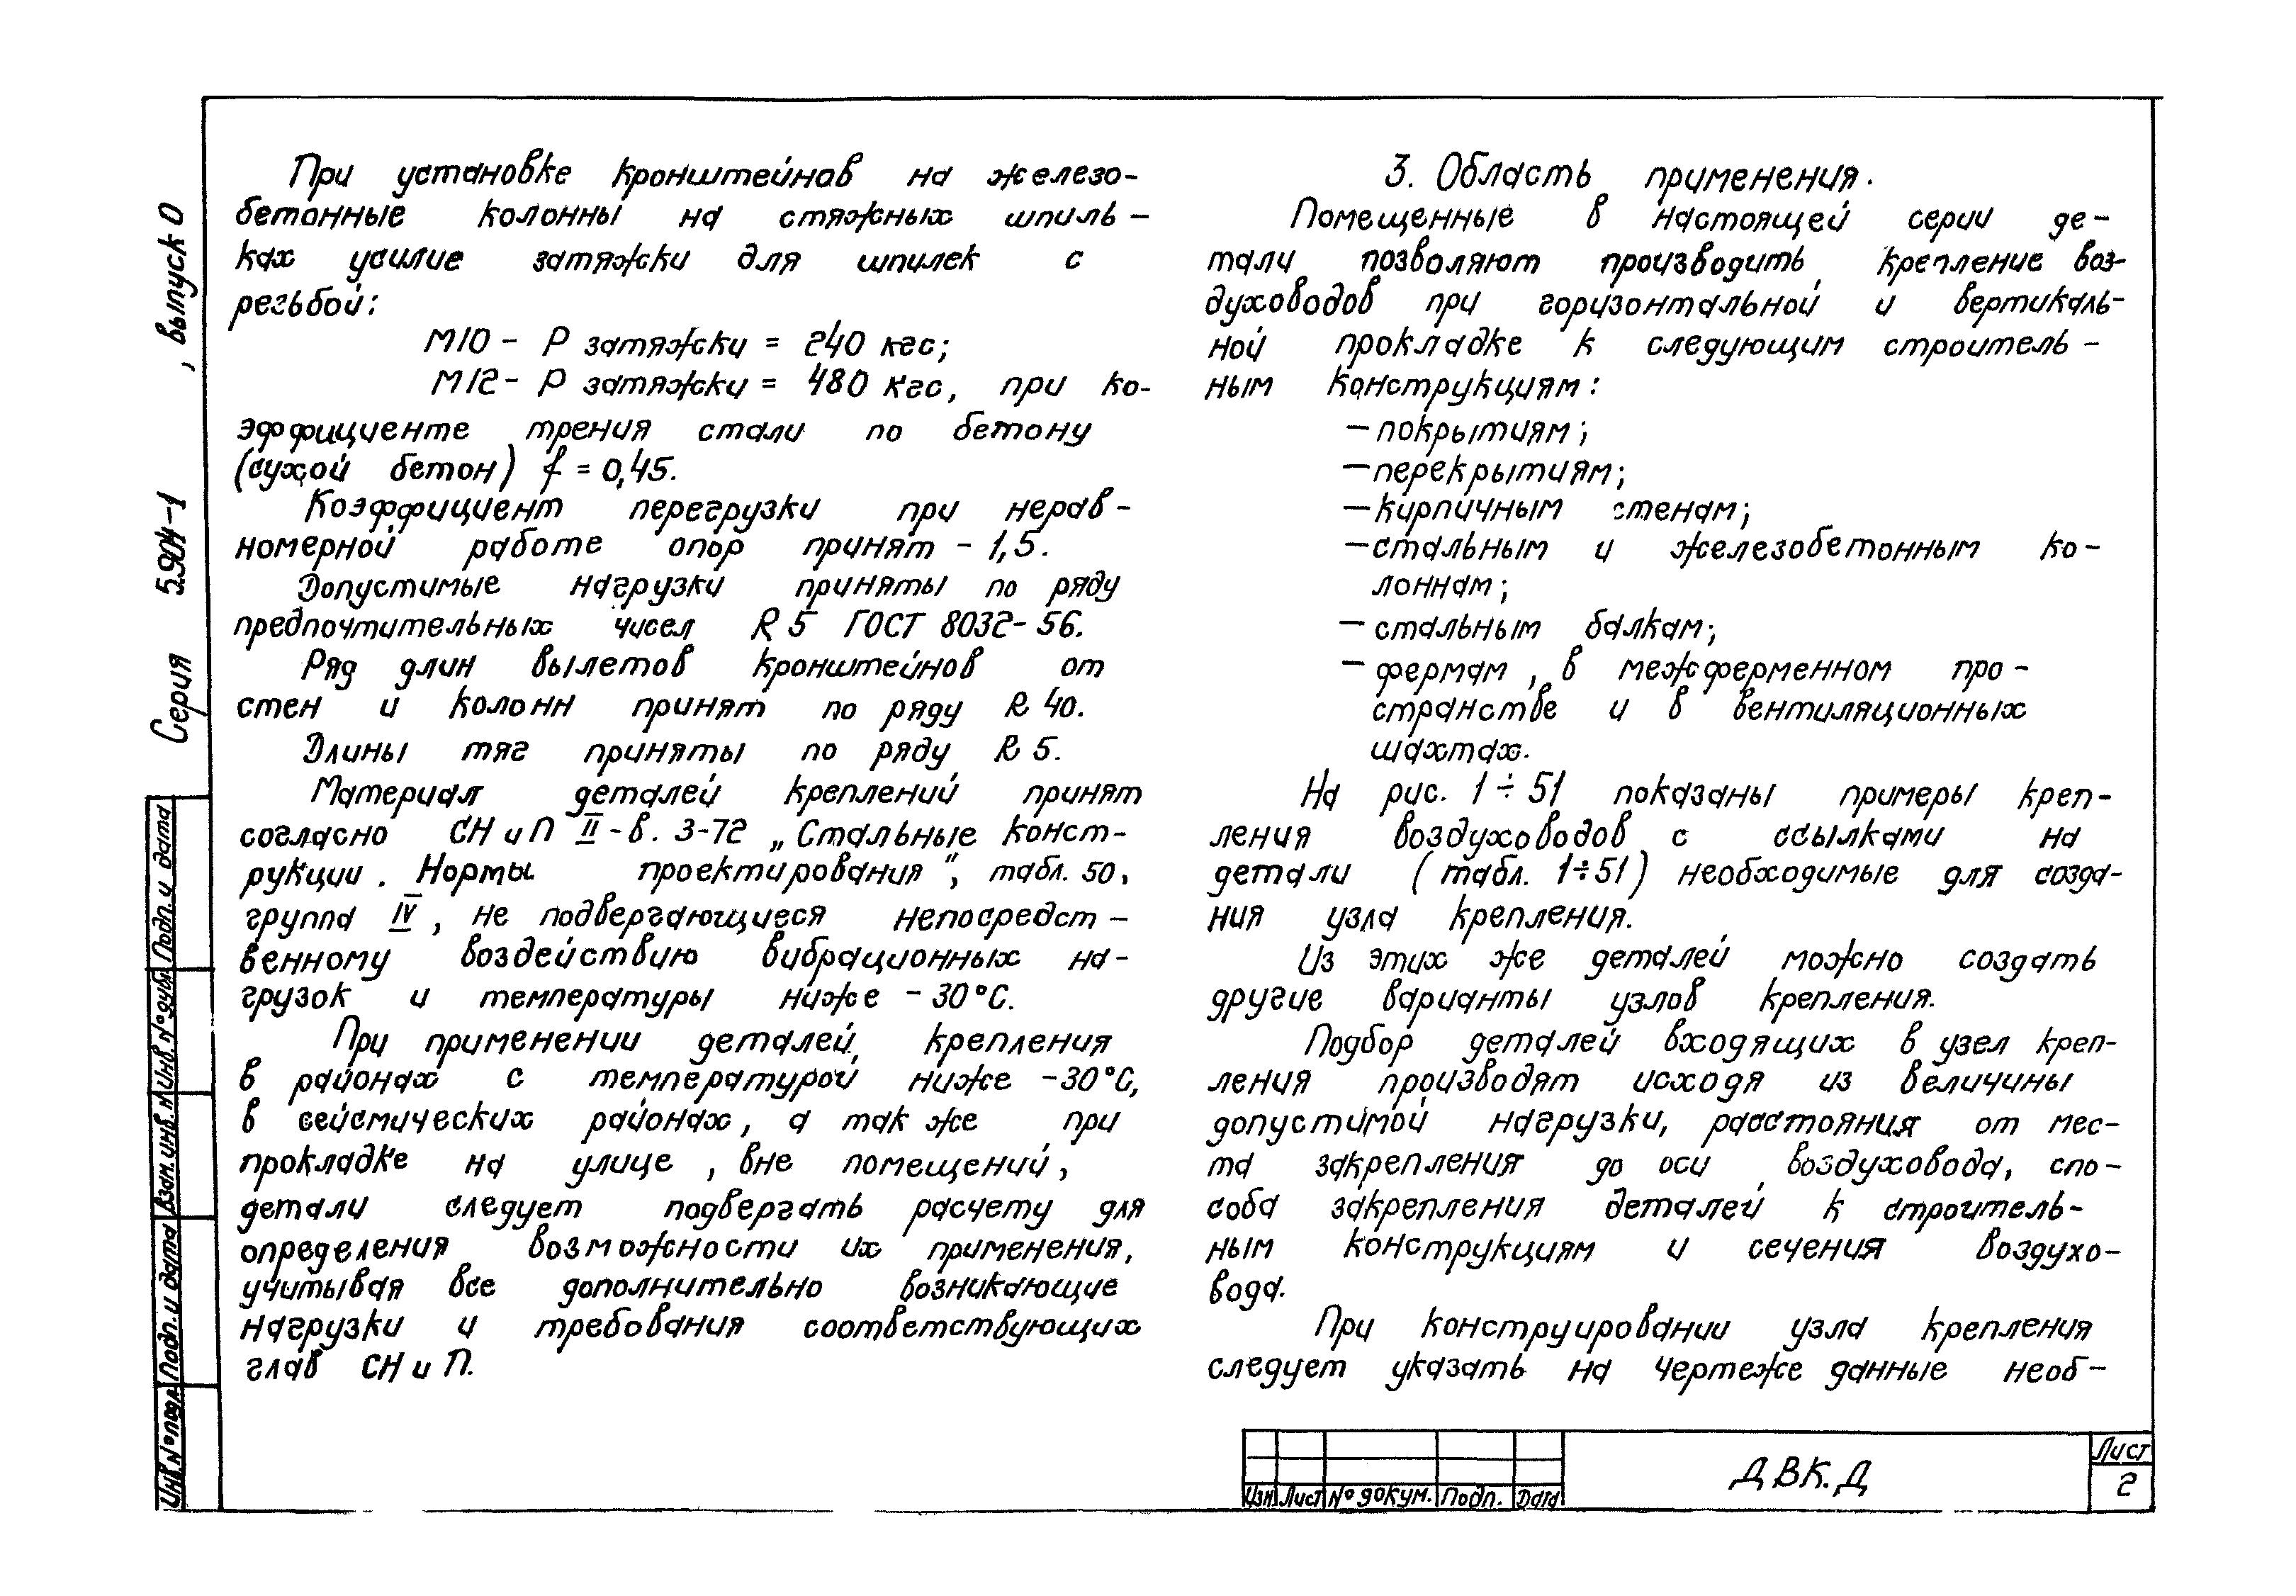 При установке кронштейнов на железо-
бетонные колонны на стяжных шпиль-
ках усилие затяжки для шпилек с
резьбой:
М10 - Р затяжки = 240 кгс;
М12 - Р затяжки = 480 кгс, при ко-
эффициенте трения стали по бетону
(сухой бетон) f = 0,45.
Коэффициент перегрузки при нерав-
номерной работе опор принят - 1,5.
Допустимые нагрузки приняты по ряду
предпочтительных чисел R 5 ГОСТ 8032-56.
Ряд длин вылетов кронштейнов от
стен и колонн принят по ряду R 40.
Длины тяг приняты по ряду R 5.
Материал деталей креплений принят
согласно СНиП II-в. 3-72 „Стальные конст-
рукции. Нормы проектирования", табл. 50,
группа IV, не подвергающиеся непосредст-
венному воздействию вибрационных на-
грузок и температуры ниже -30°С.
При применении деталей крепления
в районах с температурой ниже -30°С,
в сейсмических районах, а так же при
прокладке на улице, вне помещений,
детали следует подвергать расчету для
определения возможности их применения,
учитывая все дополнительно возникающие
нагрузки и требования соответствующих
глав СНиП.
3. Область применения.
Помещенные в настоящей серии де-
тали позволяют производить крепление воз-
духоводов при горизонтальной и вертикаль-
ной прокладке к следующим строитель-
ным конструкциям:
- покрытиям;
- перекрытиям;
- кирпичным стенам;
- стальным и железобетонным ко-
лоннам;
- стальным балкам;
- фермам, в межферменном про-
странстве и в вентиляционных
шахтах.
На рис. 1÷51 показаны примеры креп-
ления воздуховодов с ссылками на
детали (табл. 1÷51) необходимые для созда-
ния узла крепления.
Из этих же деталей можно создать
другие варианты узлов крепления.
Подбор деталей входящих в узел креп-
ления производят исходя из величины
допустимой нагрузки, расстояния от мес-
та закрепления до оси воздуховода, спо-
соба закрепления деталей к строитель-
ным конструкциям и сечения воздухо-
вода.
При конструировании узла крепления
следует указать на чертеже данные необ-
Серия 5.904-1, выпуск 0
Подп. и дата
Инв. № дубл.
Взам. инв. №
Подп. и дата
Инв. № подл.
Изм Лист № докум. Подп. Дата
ДВК.Д
Лист
2